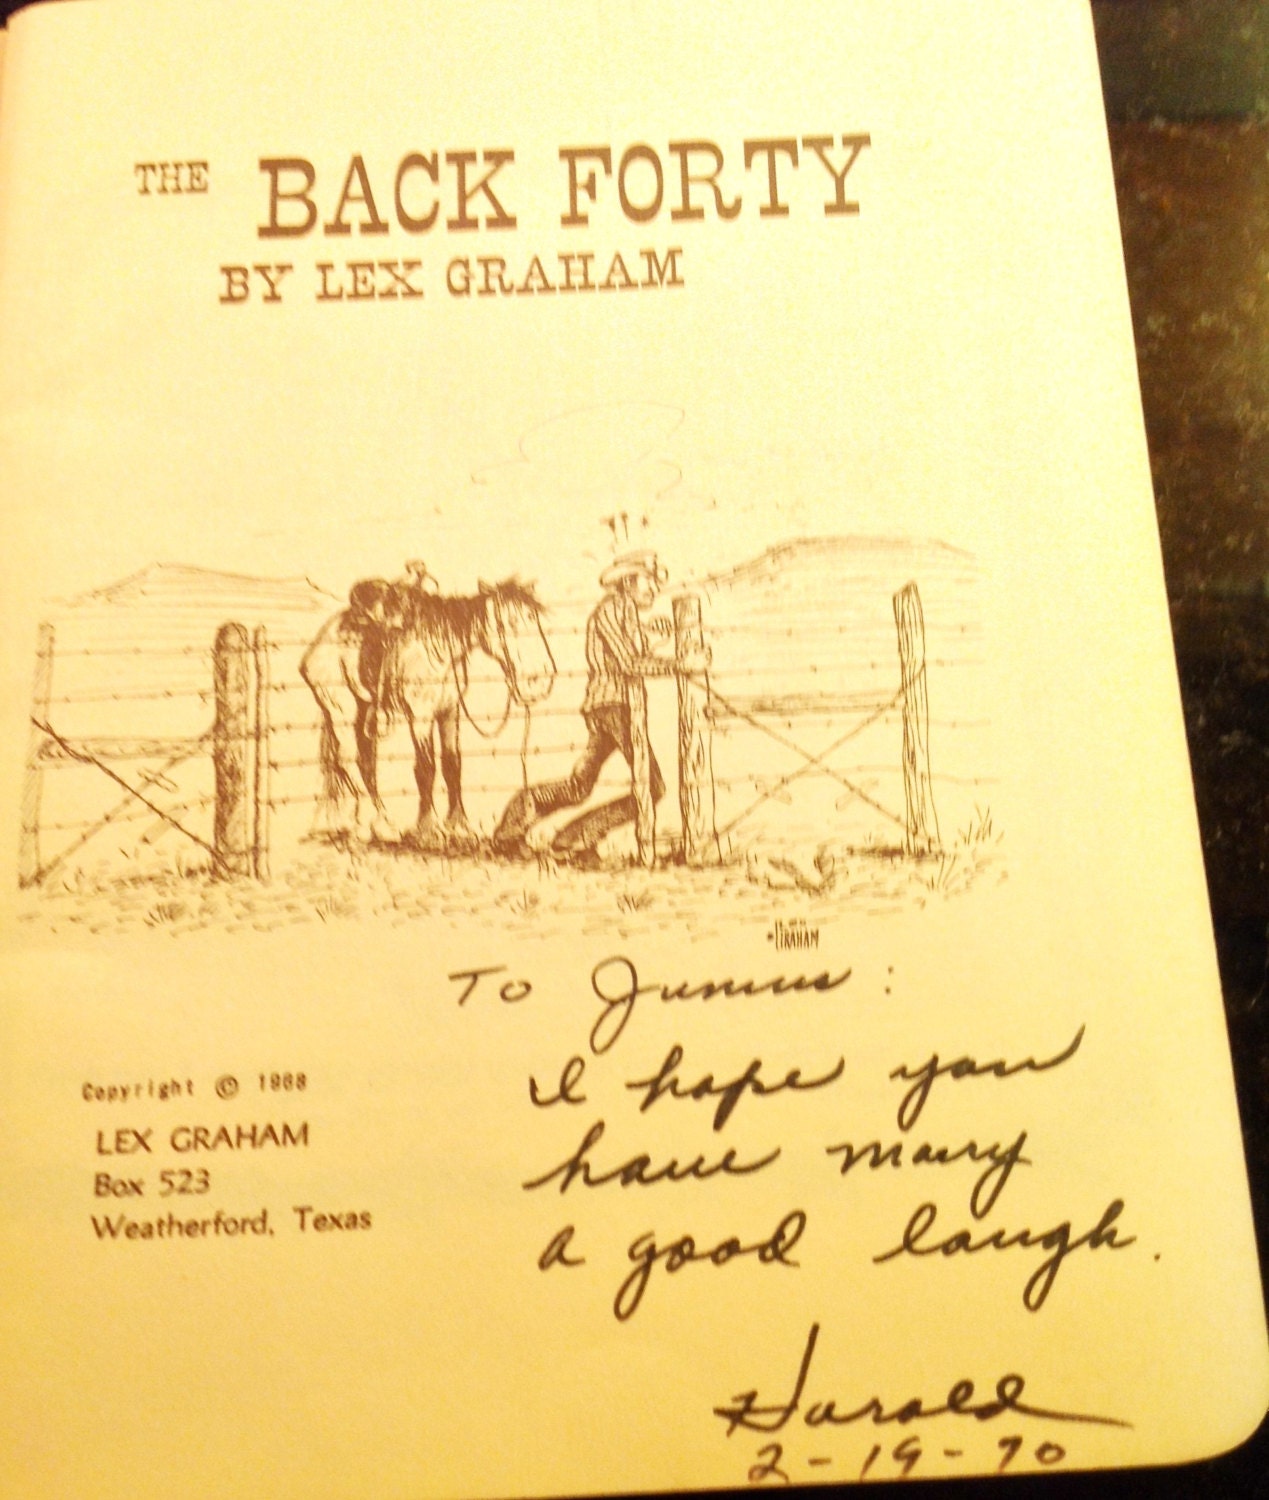 THE BACK FORTY
BY LEX GRAHAM
GRAHAM
To Junius:
I hope you
have many
a good laugh.
Harold
2-19-70
Copyright © 1968
LEX GRAHAM
Box 523
Weatherford, Texas